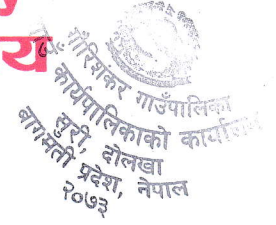 य
गौरीशंकर गाउँपालिका
गाउँ कार्यपालिकाको कार्यालय
सुरी, दोलखा
बागमती प्रदेश, नेपाल
२०७३